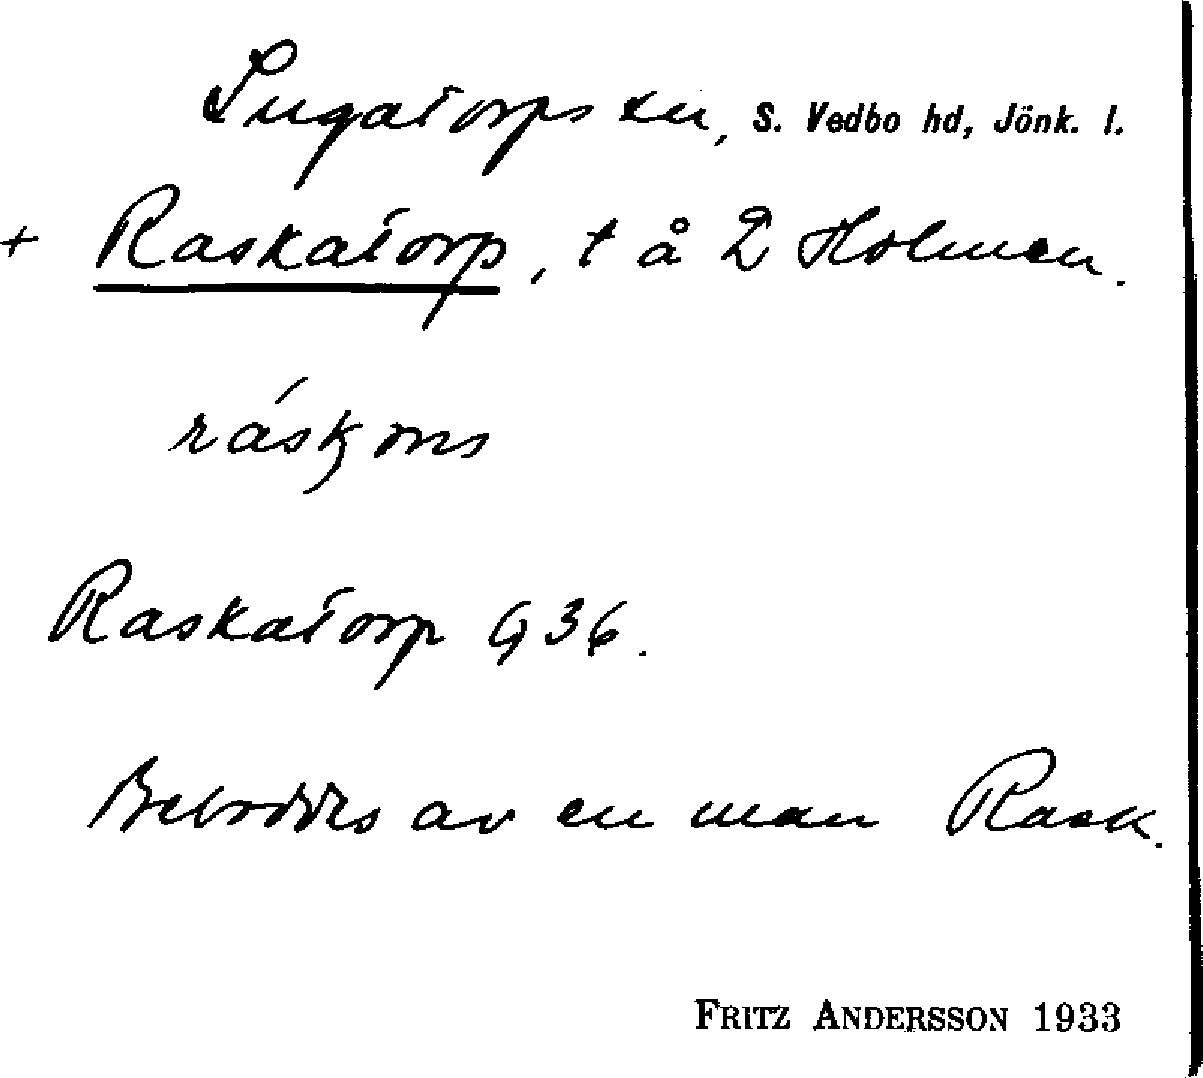 Ingatorps sn, S. Vedbo hd, Jönk. l.
+ Raskatorp, t å Holmen.
Raskatorp G36.
Beboddes av en man Rask.
FRITZ ANDERSSON 1933